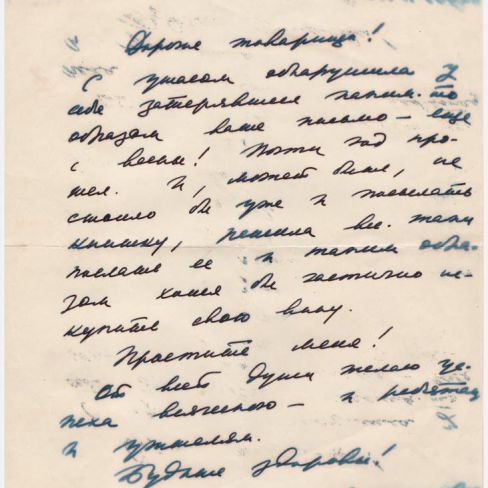 Дорогие товарищи!
С ужасом обнаружила у
себя затерявшееся каким-то
образом ваше письмо – еще
с весны! Почти год про-
шел. И, может быть, не
стоило бы уже и посылать
книжку, решила все-таки
послать ее и таким обра-
зом хотя бы частично ис-
купить свою вину.
Простите меня!
От всей души желаю ус-
пеха всяческого – и ребятам
и учителям.
Будьте здоровы!